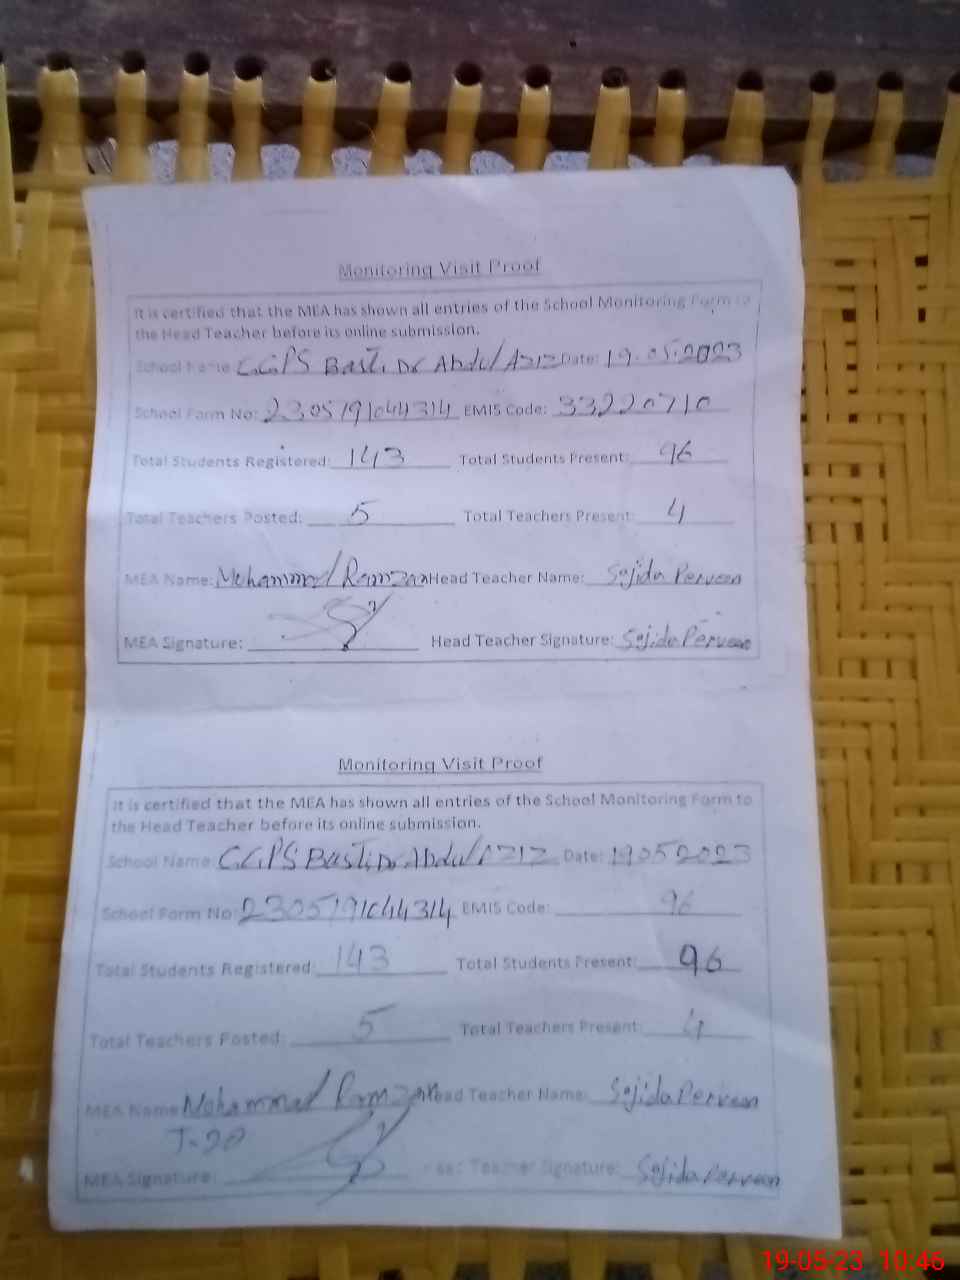 Monitoring Visit Proof
It is certified that the MEA has shown all entries of the School Monitoring Form to
the Head Teacher before its online submission.
School Name GGPS Basti Dr Abdul Aziz Date: 19.05.2023
School Form No: 2305191044314 EMIS Code: 33220710
Total Students Registered: 143 Total Students Present: 96
Total Teachers Posted: 5 Total Teachers Present: 4
MEA Name: Mohammad Ramzan Head Teacher Name: Sajida Perveen
MEA Signature: Head Teacher Signature: Sajida Perveen
Monitoring Visit Proof
It is certified that the MEA has shown all entries of the School Monitoring Form to
the Head Teacher before its online submission.
School Name: GGPS Basti Dr Abdul Aziz Date: 19052023
School Form No: 2305191044314 EMIS Code: 96
Total Students Registered: 143 Total Students Present: 96
Total Teachers Posted: 5 Total Teachers Present: 4
MEA Name Mohammad Ramzan Head Teacher Name: Sajida Perveen
J-20
MEA Signature: Teacher Signature: Sajida Perveen
19-05-23 10:46